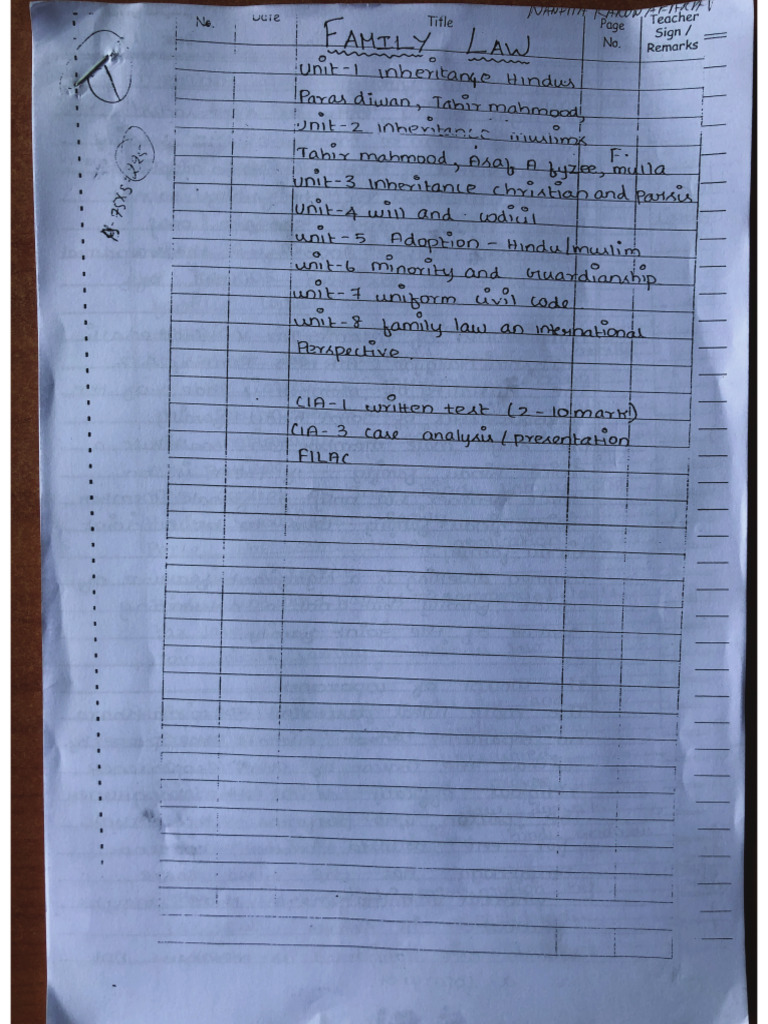 No. Date Title Page No. Teacher Sign / Remarks
FAMILY LAW
Unit-1 inheritance Hindus
Paras diwan, Tahir mahmood,
Unit-2 inheritance muslims
Tahir mahmood, Asaf A F. fyzee, mulla
Unit-3 inheritance christian and parsis
Unit-4 will and codicil
Unit-5 Adoption - Hindu/muslim
Unit-6 minority and Guardianship
Unit-7 uniform civil code
Unit-8 family law an international
Perspective.
CIA-1 written test (2-10 mark)
CIA-3 case analysis/presentation
FILAC